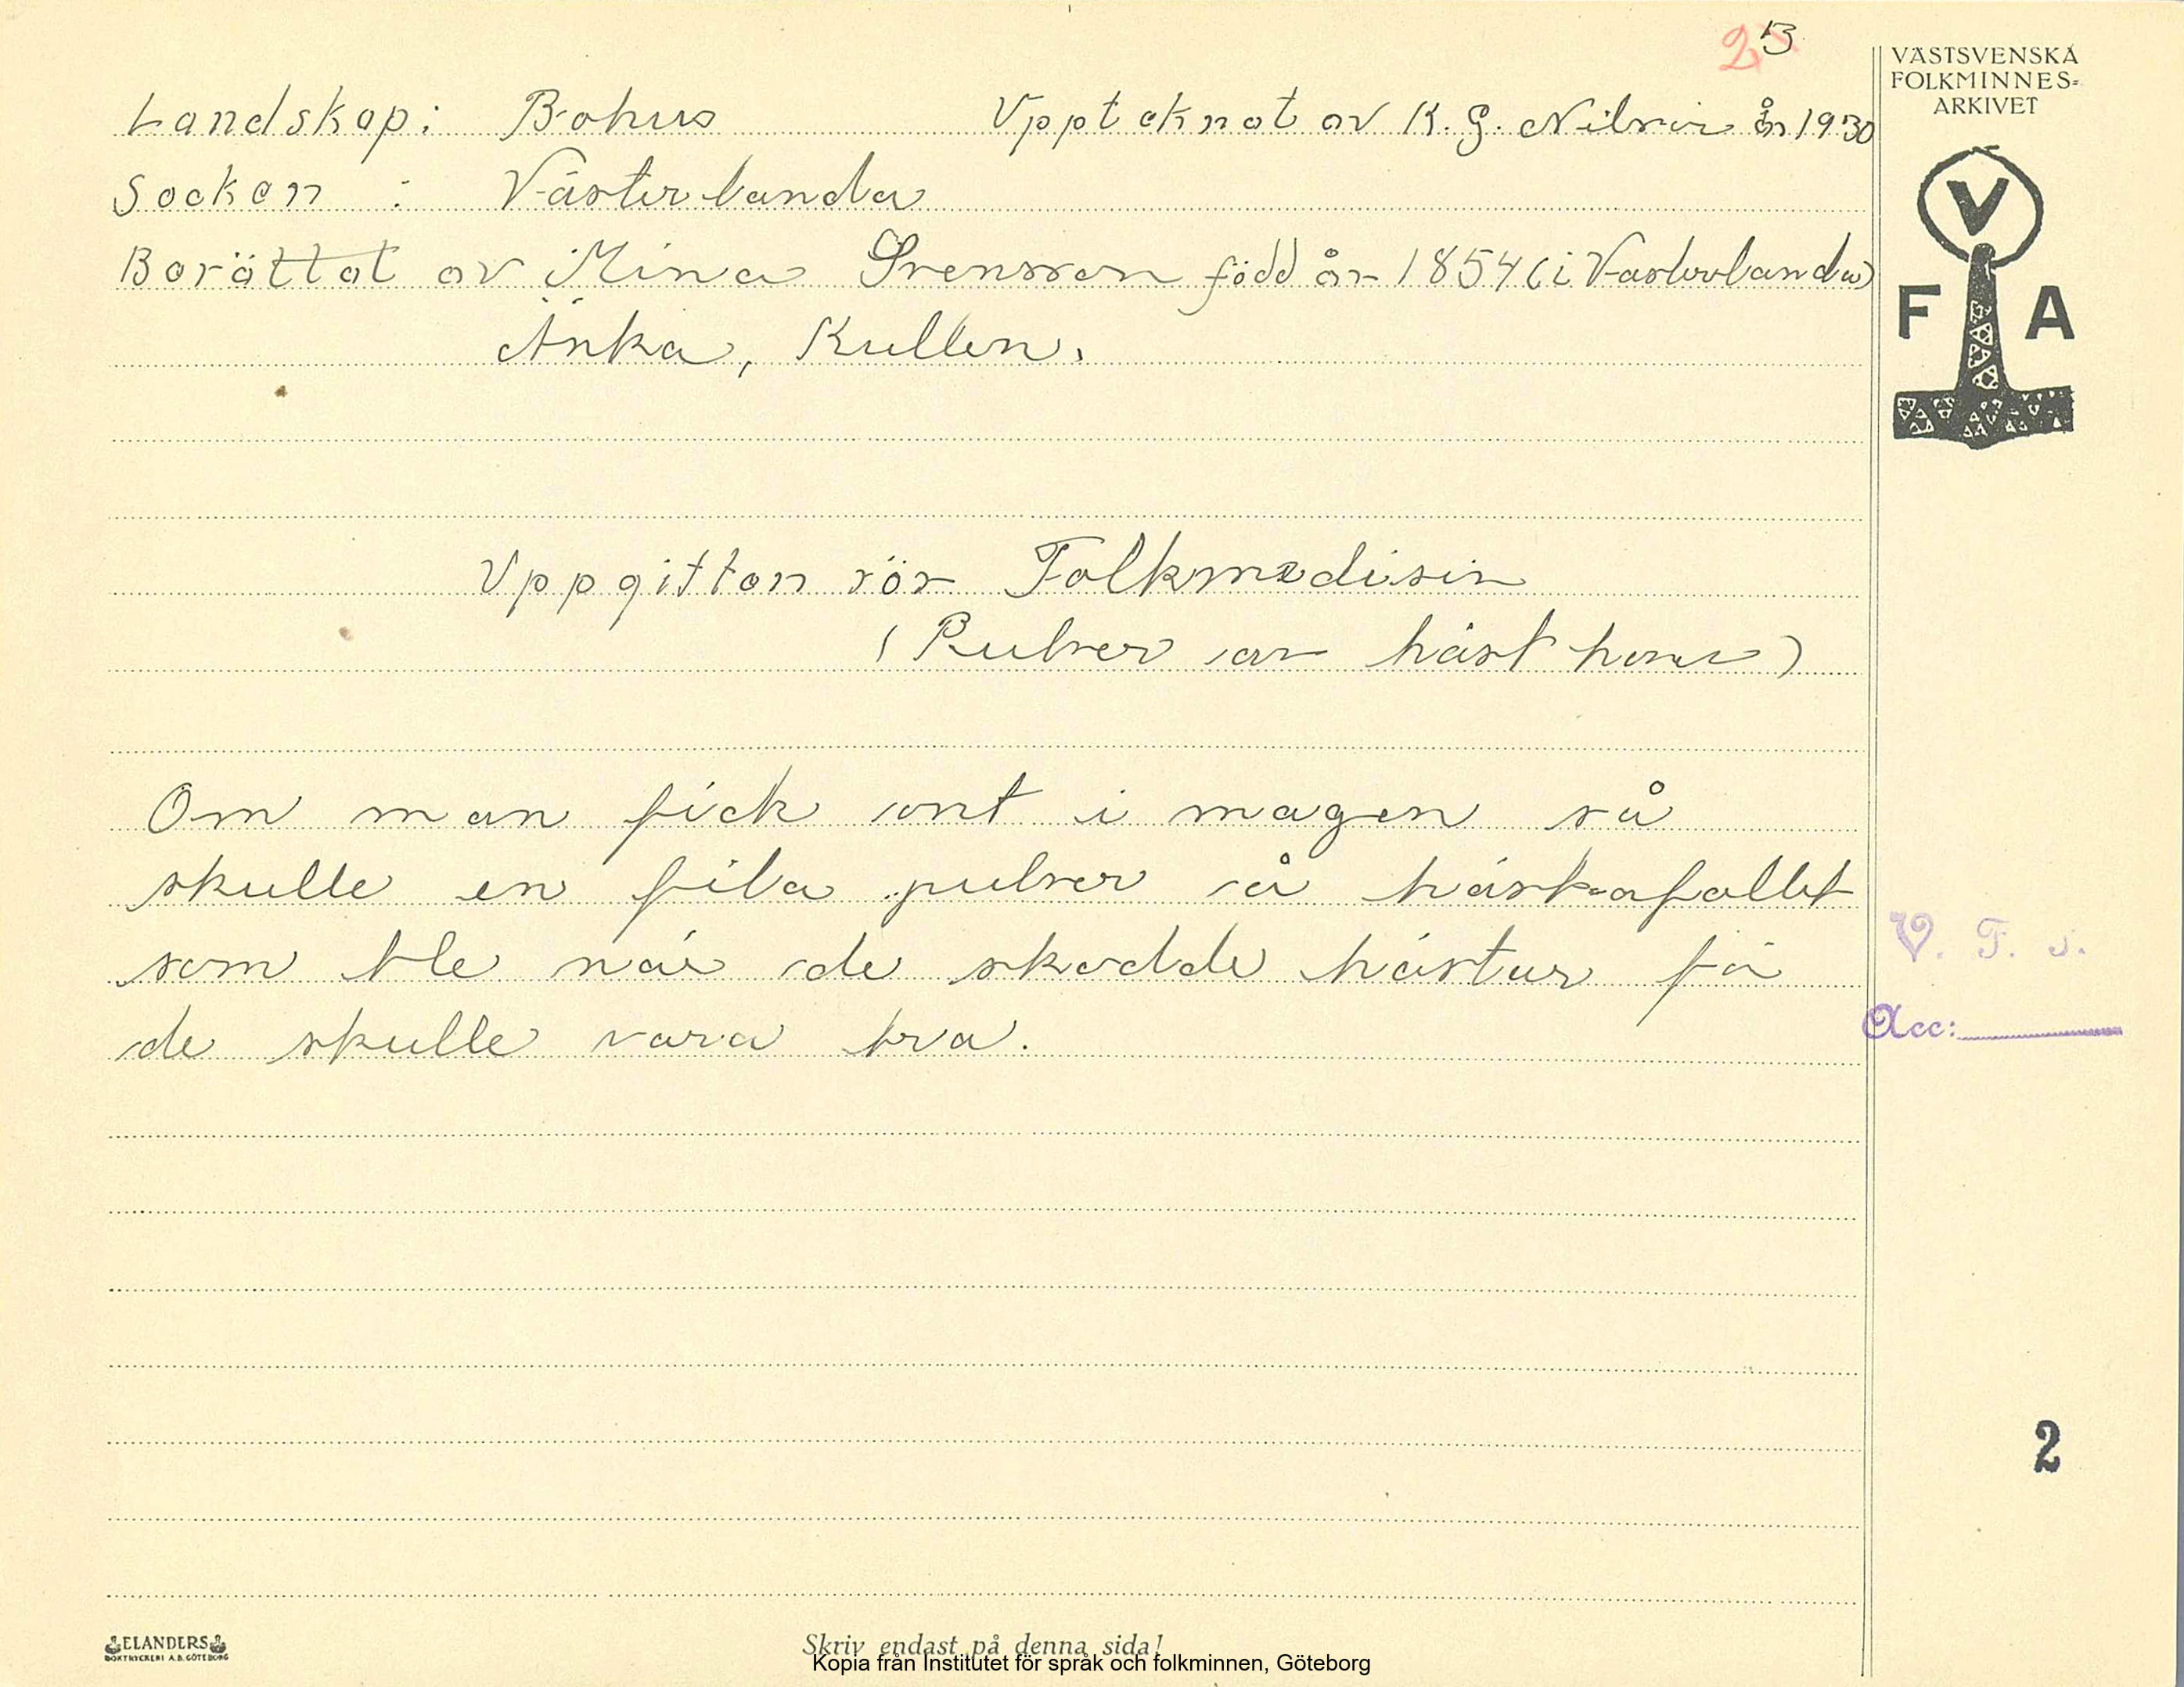 23
VÄSTSVENSKA
FOLKMINNES-
ARKIVET
V
F A
Landskap: Bohus Upptecknat av K. G. år 1930
Socken : Västerlanda
Berättat av Mina Svensson född år 1854 (i Västerlanda)
Änka, Kullen.
Uppgiften rör Folkmedisin
(Pulver av häst hov)
Om man fick ont i magen så
skulle en fila pulver å hästafallet
som ble när de skodde hästar få
de skulle vara bra.
V. F. S.
Acc:
2
ELANDERS
BOKTRYCKERI A.B. GÖTEBORG
Skriv endast på denna sida!
Kopia från Institutet för språk och folkminnen, Göteborg